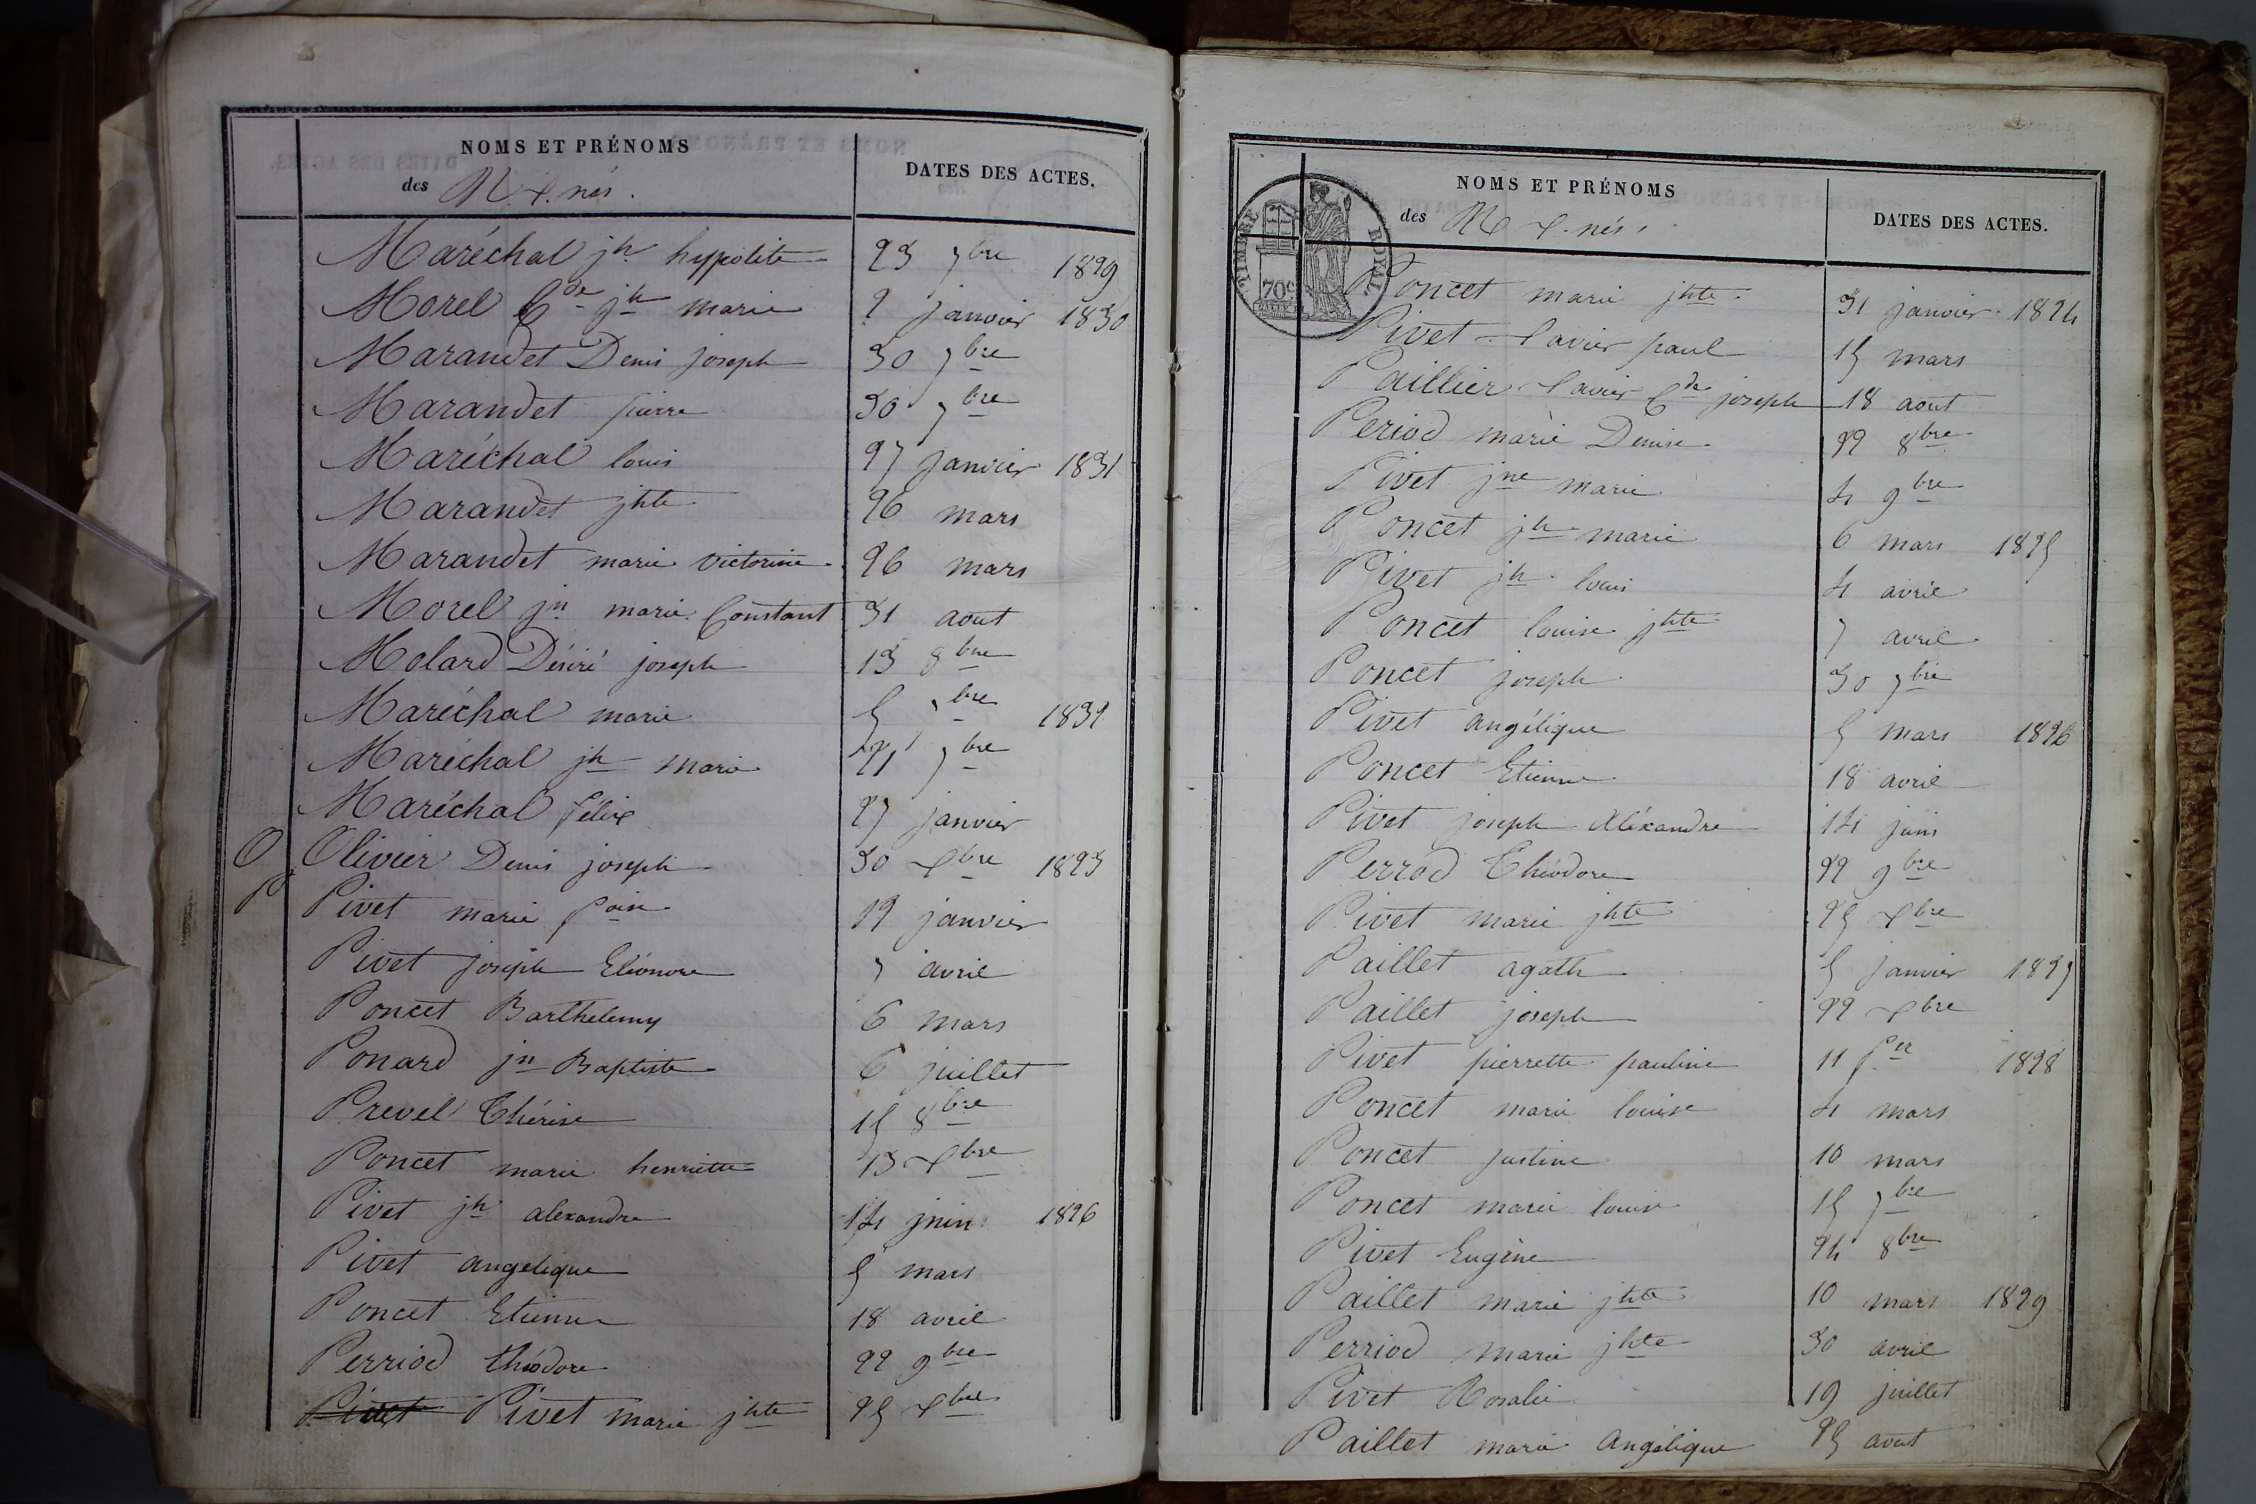 NOMS ET PRÉNOMS
des N.x.nés.
DATES DES ACTES.
Maréchal jh hypolite 23 7bre 1829
Morel Cde jh marie 2 janvier 1830
Marandet Denis joseph 30 7bre
Marandet pierre 30 7bre
Maréchal louis 27 janvier 1831
Marandet jhte 26 mars
Marandet marie victorine 26 mars
Morel jn marie Constant 31 aout
Molard Désiré joseph 13 8bre
Maréchal marie 5 7bre 1832
Maréchal jh marie 21 7bre
Maréchal félix 27 janvier
O Olivier Denis joseph 30 xbre 1823
P Pivet marie foise 12 janvier
Pivet joseph Eléonore 7 avril
Poncet Barthelemy 6 mars
Ponard jn Baptiste 6 juillet
Prevel Thérèse 15 8bre
Poncet marie henriette 13 xbre
Pivet jh alexandre 14 juin 1826
Pivet angelique 5 mars
Poncet Etienne 18 avril
Perriod théodore 22 9bre
Pivet Pivet marie jhte 25 xbre
NOMS ET PRÉNOMS
des N x.nés.
DATES DES ACTES.
TIMBRE ROYAL
70c
Poncet marie jhte 31 janvier 1824
Pivet xavier paul 15 mars
Paillier xavier Cde joseph 18 aout
Period marie Denise 22 8bre
Pivet jne marie 4 9bre
Poncet jh marie 6 mars 1825
Pivet jh louis 4 avril
Poncet louise jhte 7 avril
Poncet joseph 30 7bre
Pivet angélique 5 mars 1826
Poncet Etienne 18 avril
Pivet joseph Aléxandre 14 juin
Perrod Théodore 22 9bre
Pivet marie jhte 25 xbre
Paillet agathe 5 janvier 1827
Paillet joseph 22 xbre
Pivet pierrette pauline 11 fer 1828
Poncet marie louise 4 mars
Poncet justine 10 mars
Poncet marie louise 15 7bre
Pivet Eugène 24 8bre
Paillet marie jhte 10 mars 1829
Perriod marie jhte 30 avril
Pivet Rosalie 19 juillet
Paillet marie Angélique 25 aout